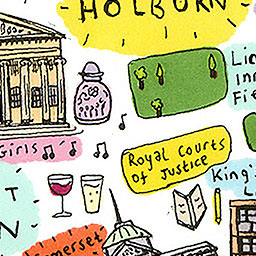 HOLBORN
Lin
Inn
Fie
Girls
Royal Courts
of Justice
King'
L
T
N
Somerset